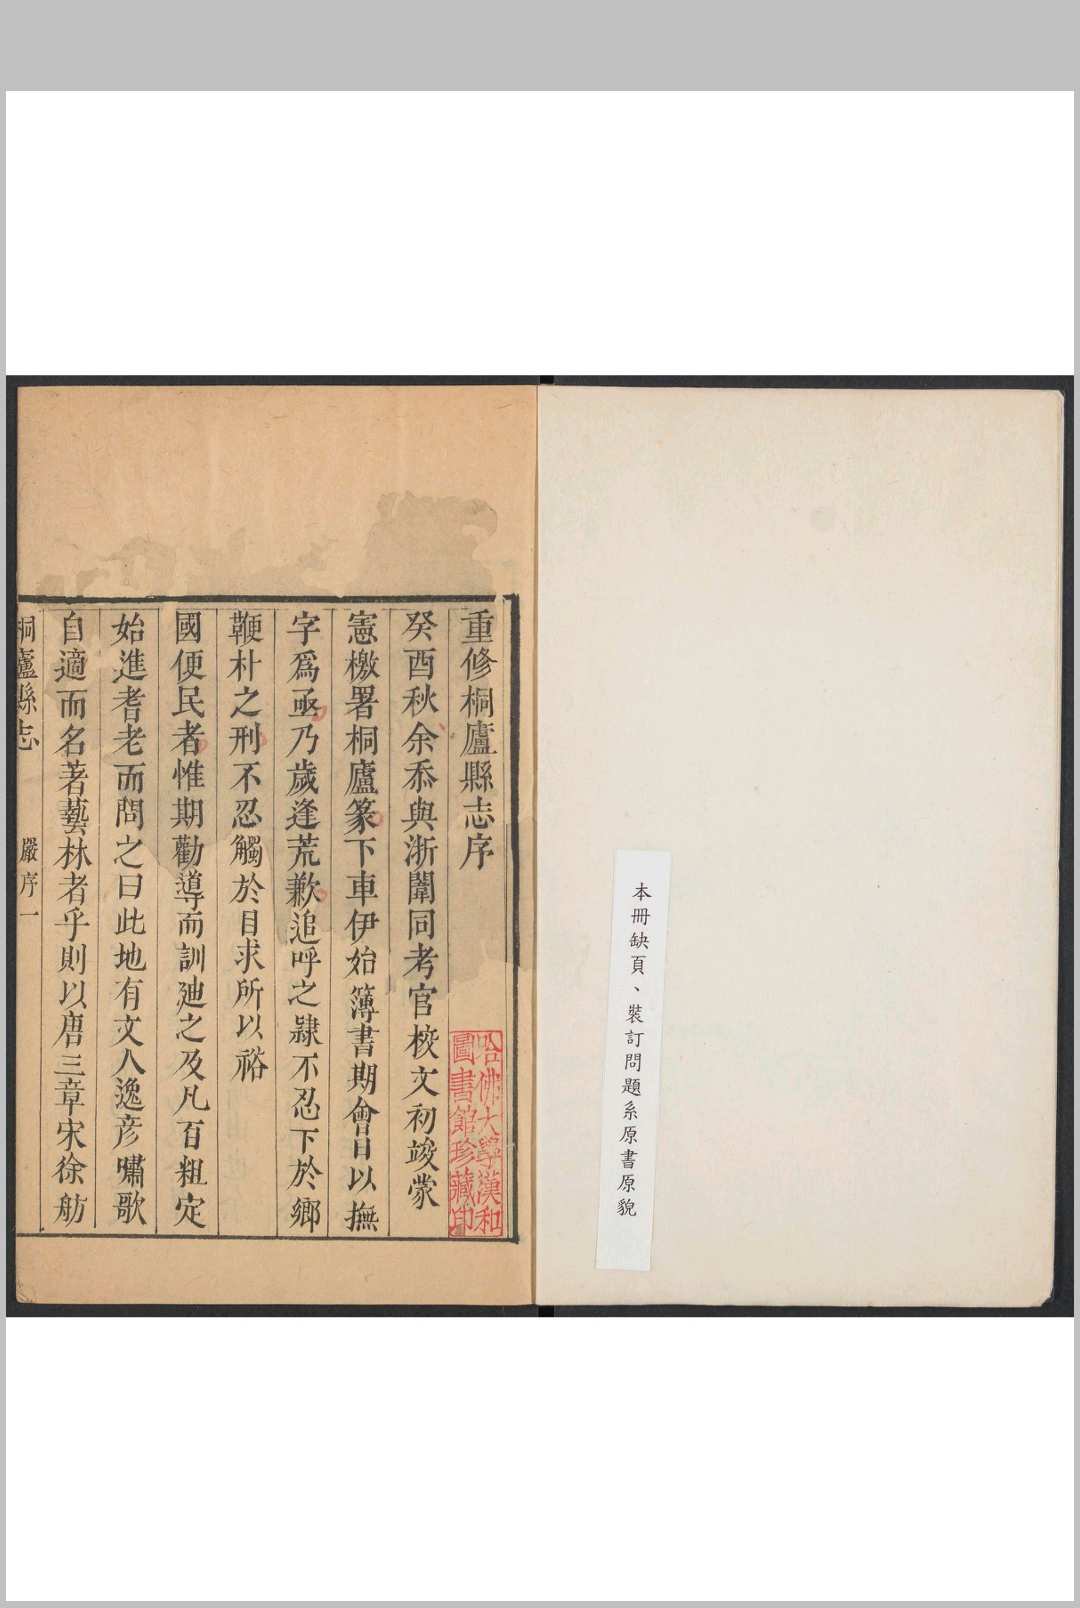 本冊缺頁、裝訂問題系原書原貌
重修桐廬縣志序
癸酉秋余忝與浙闈同考官校文初竣蒙
憲檄署桐廬篆下車伊始簿書期會日以撫
字爲亟乃歲逢荒歉追呼之隷不忍下於鄉
鞭朴之刑不忍觸於目求所以裕
國便民者惟期勸導而訓廸之及凡百粗定
始進耆老而問之曰此地有文人逸彦嘯歌
自適而名著藝林者乎則以唐三章宋徐舫
桐廬縣志 嚴序 一
哈佛大學漢和
圖書館珍藏印